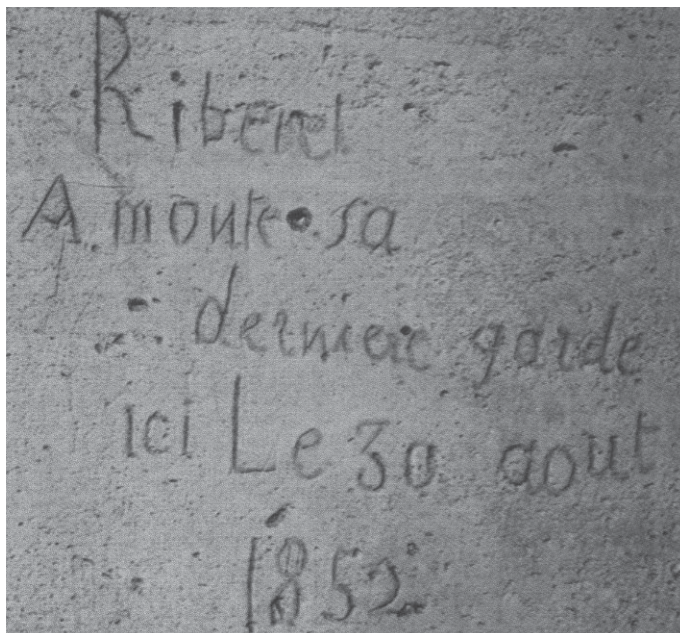 Riberet
A monte sa
derniere garde
ici Le 30 aout
1852